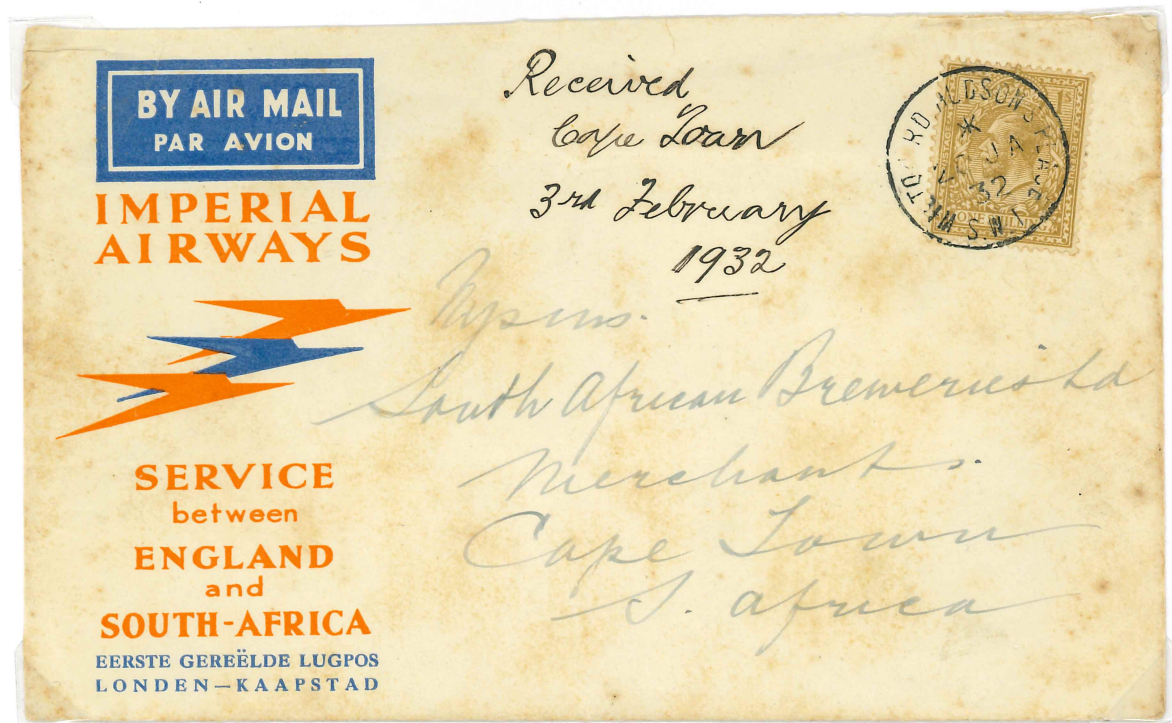 BY AIR MAIL
PAR AVION
IMPERIAL
AIRWAYS
SERVICE
between
ENGLAND
and
SOUTH-AFRICA
EERSTE GEREËLDE LUGPOS
LONDEN—KAAPSTAD
Received
Cape Town
3rd February
1932
JA
32
S.W.1
South African Breweries Ld
Merchants.
Cape Town
S. Africa